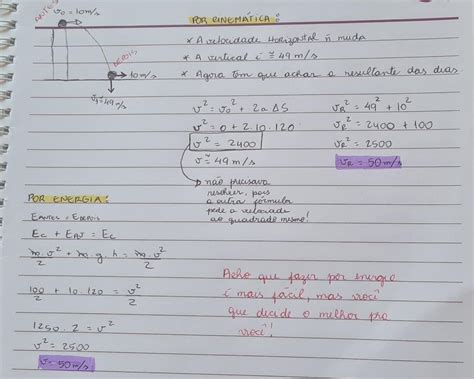 ANTES
v₀ = 10 m/s
DEPOIS
10 m/s
v_y ≅ 49 m/s
POR CINEMÁTICA:
* A velocidade Horizontal ñ muda
* A vertical é ≅ 49 m/s
* Agora tem que achar a resultante das duas
v² = v₀² + 2a ΔS
v² = 0 + 2.10.120
v² = 2400
v ≅ 49 m/s
não precisava
resolver, pois
a outra fórmula
pede a velocidade
ao quadrado mesmo!
v_R² = 49² + 10²
v_R² = 2400 + 100
v_R² = 2500
v_R = 50 m/s
POR ENERGIA:
E_ANTES = E_DEPOIS
E_C + E_PG = E_C
m.v²/2 + m.g.h = m.v²/2
100/2 + 10.120 = v²/2
1250.2 = v²
v² = 2500
v = 50 m/s
Acho que fazer por energia
é mais fácil, mas você
que decide o melhor pra
você!